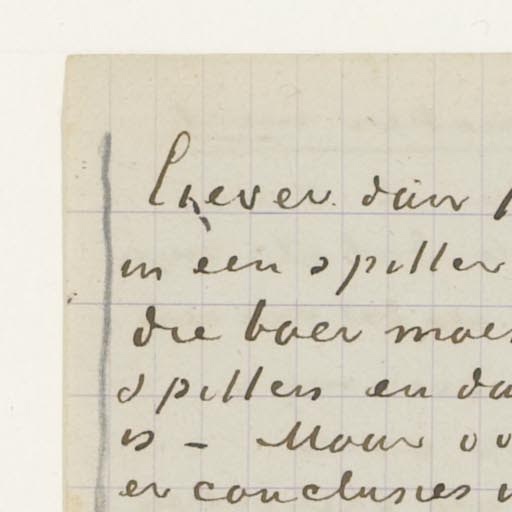 Liever dan
in één spiller
die boer moes
spillers en da
is - Maar oo
er conclusies